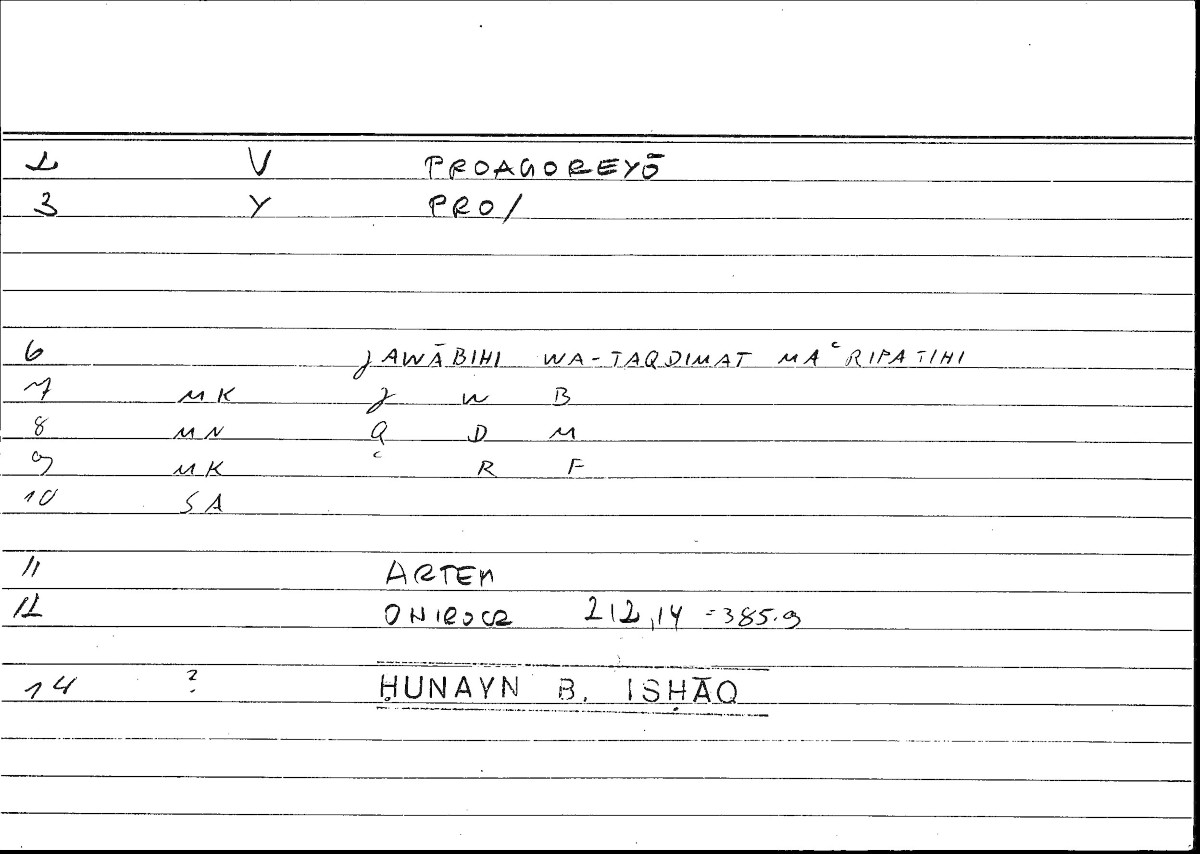 1 V PROAGOREYŌ
3 Y PRO/
6 JAWĀBIHI WA-TAQDIMAT MAʿRIPATIHI
7 MK J W B
8 MN Q D M
9 MK ʿ R F
10 SA
11 ARTEM
12 ONIROCR 212,14 = 385.9
14 ? ḤUNAYN B. ISḤĀQ